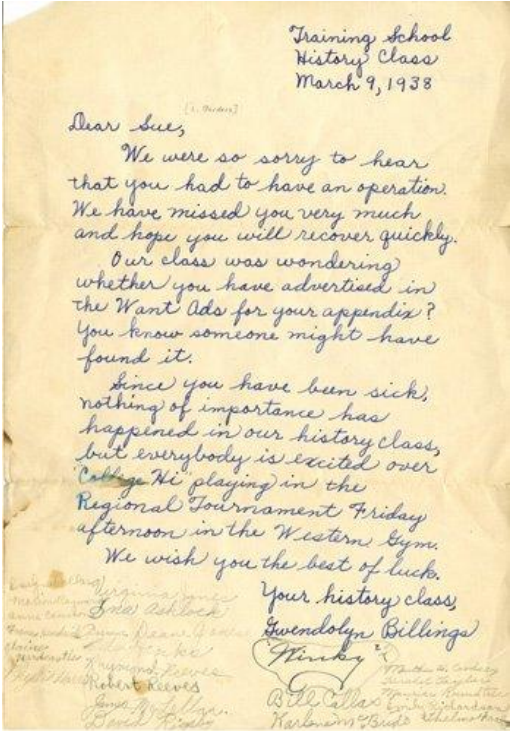 Training School
History Class
March 9, 1938
Dear Sue,
We were so sorry to hear
that you had to have an operation.
We have missed you very much
and hope you will recover quickly.
Our class was wondering
whether you have advertised in
the Want Ads for your appendix?
You know someone might have
found it.
Since you have been sick,
nothing of importance has
happened in our history class,
but everybody is excited over
"College Hi" playing in the
Regional Tournament Friday
afternoon in the Western Gym.
We wish you the best of luck.
Your history class,
Gwendolyn Billings
"Winky"
Virginia Jones
Ina Ashlock
Deane
Raymond Reeves
Robert Reeves
James McLellan
David
Bill Callas
Karlena McBride
Emily Richardson